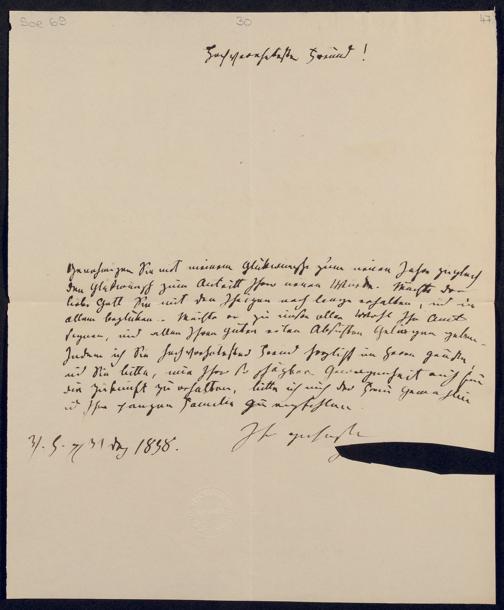 Soe 69 30 47
Hochverehrtester Freund!
Genehmigen Sie mit meinem Glükwunsche zum neuen Jahre zugleich
den Glükwunsch zum Antritt Ihrer neuen Würde. Möchte der
liebe Gott Sie mit den Ihrigen noch lange erhalten, und in
allem beglüken. Möchte er zu unser aller Wohl Ihr Amt
segnen, und allen Ihren guten Absichten Gelingen geben.
Indem ich Sie hochverehrtester Freund herzlich im Herrn grüße
und Sie bitte, mir Ihre Gewogenheit auch für
die Zukunft zu erhalten, bitte ich mich der Frau Gemahlin
u Ihrer ganzen Familie zu empfehlen.
31 Dez 1838.
Ihr